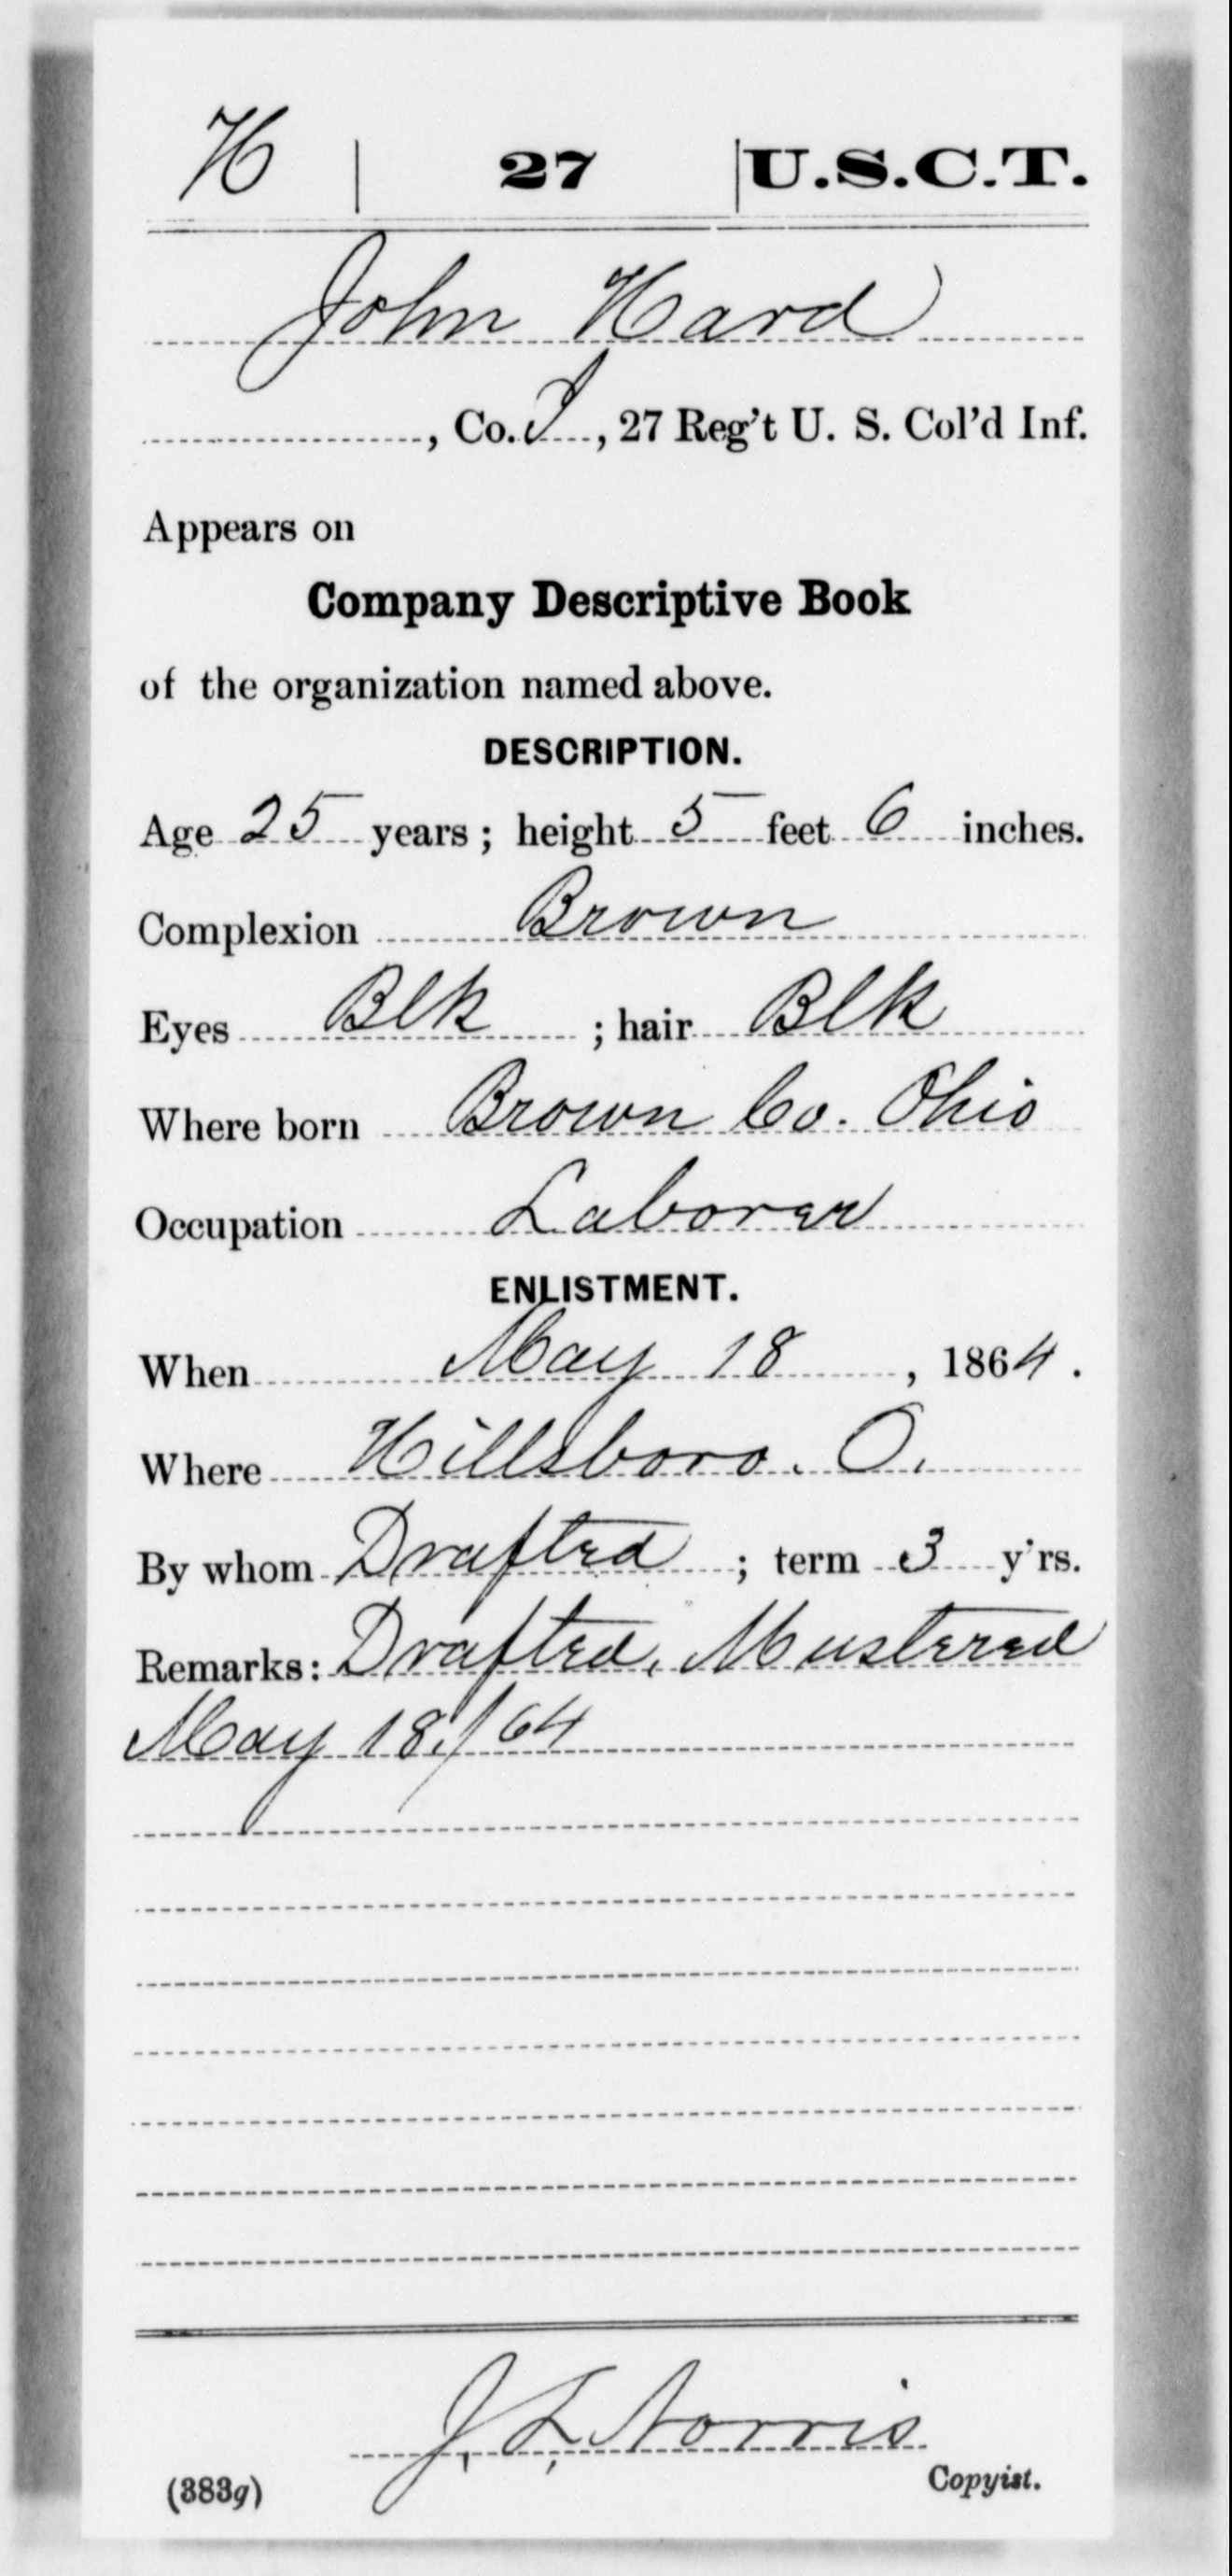 H | 27 | U.S.C.T.
John Hard
, Co. I, 27 Reg't U. S. Col'd Inf.
Appears on
Company Descriptive Book
of the organization named above.
DESCRIPTION.
Age 25 years; height 5 feet 6 inches.
Complexion Brown
Eyes Blk ; hair Blk
Where born Brown Co. Ohio
Occupation Laborer
ENLISTMENT.
When May 18, 1864.
Where Hillsboro. O.
By whom Drafted; term 3 y'rs.
Remarks: Drafted, Mustered
May 18,/64
J. L. Norris
Copyist.
(383g)